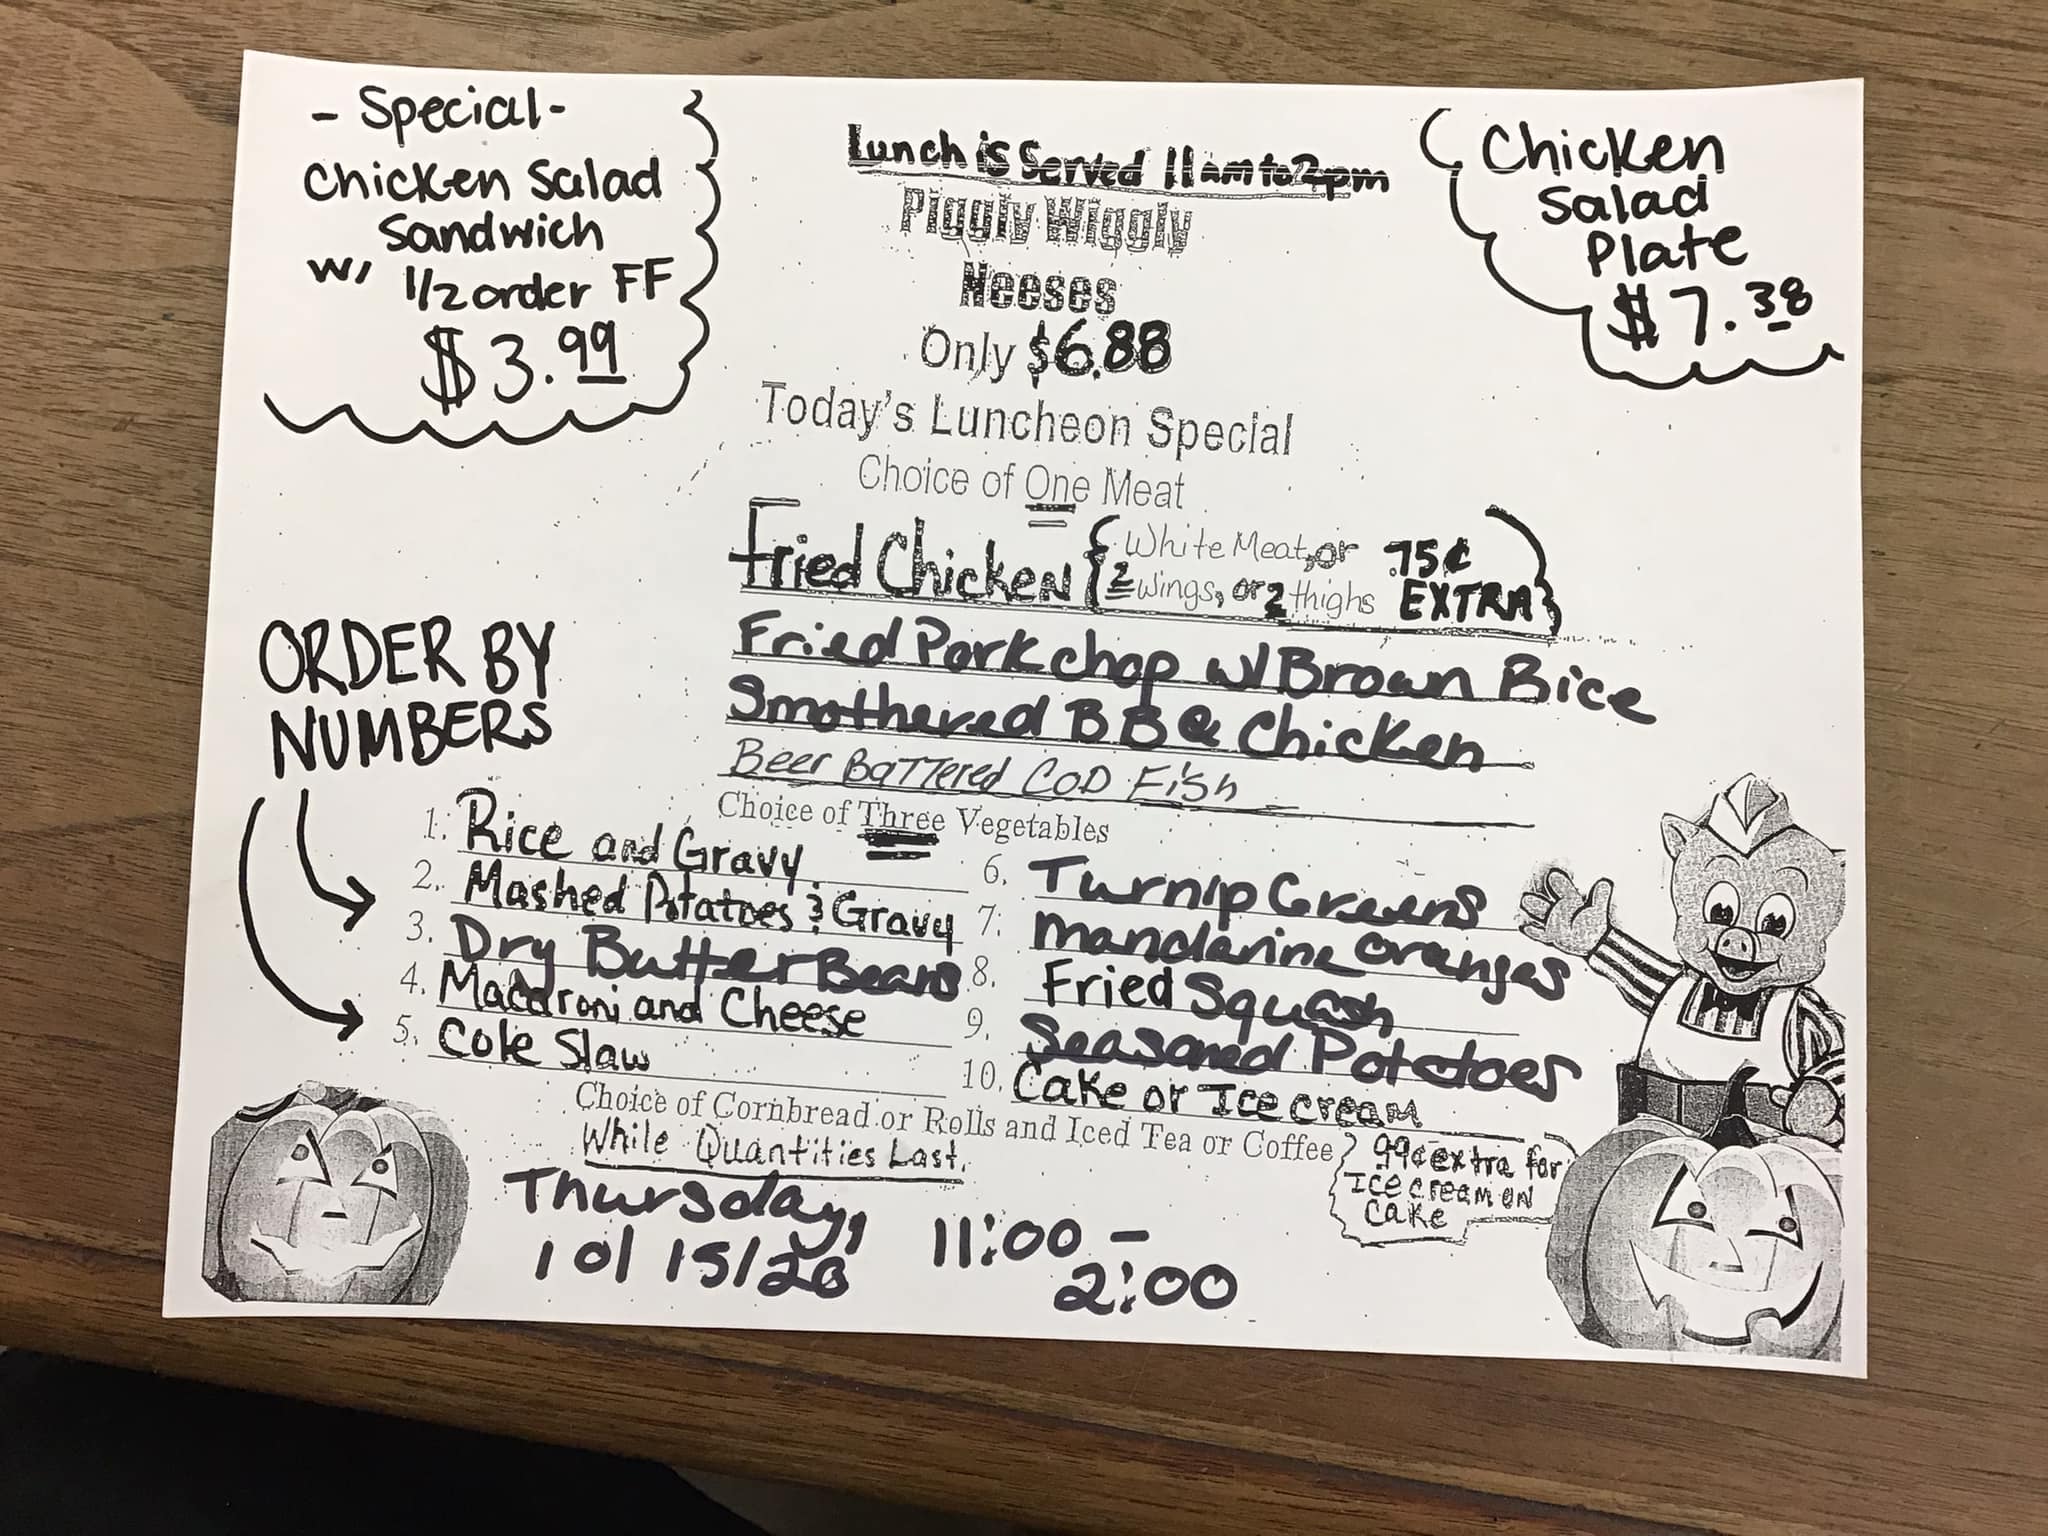 - Special -
Chicken Salad
Sandwich
w/ 1/2 order FF
$3.99
Lunch is Served 11am to 2pm
Piggly Wiggly
Neeses
Only $6.88
Today's Luncheon Special
Choice of One Meat
Chicken
Salad
Plate
$7.38
Fried Chicken { White Meat, or 75¢
2 wings, or 2 thighs EXTRA }
Fried Pork chop w/ Brown Rice
Smothered BBQ Chicken
Beer Battered Cod Fish
ORDER BY
NUMBERS
Choice of Three Vegetables
1. Rice and Gravy
2. Mashed Potatoes & Gravy
3. Dry Butter Beans
4. Macaroni and Cheese
5. Cole Slaw
6. Turnip Greens
7. Mandarine oranges
8. Fried Squash
9. Seasoned Potatoes
10. Cake or Ice cream
Choice of Cornbread or Rolls and Iced Tea or Coffee
While Quantities Last.
99¢ extra for
Ice cream on
Cake
Thursday,
10/15/20
11:00 -
2:00